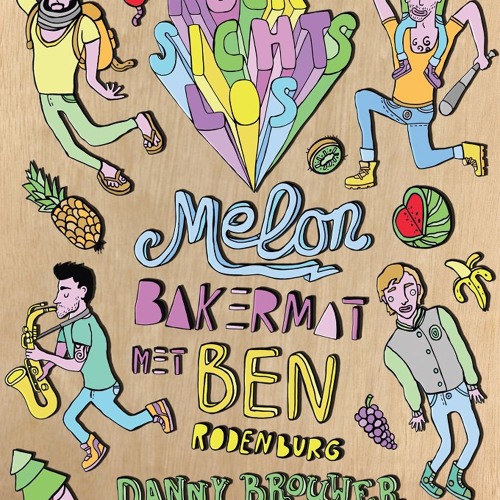 SICHTS
LOS
Melon
BAKERMAT
MET BEN
RODENBURG
DANNY BROUWER